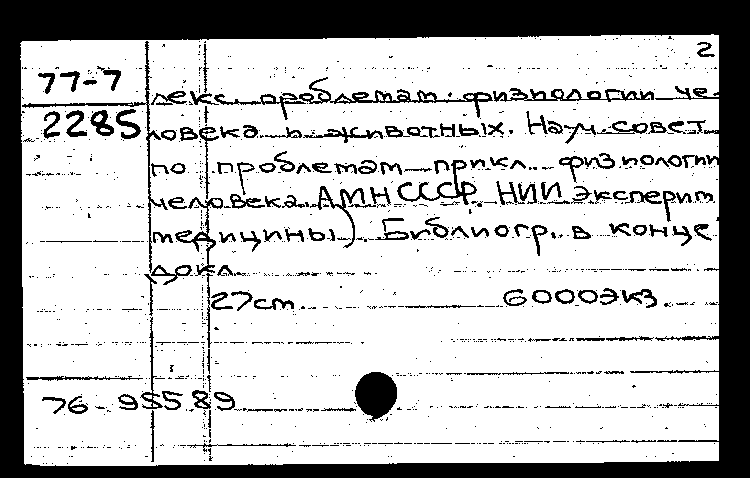 2
77-7
2285
лекс. проблемам физиологии че-
ловека и животных. Науч. совет
по проблемам прикл. физиологии
человека АМН СССР. НИИ эксперим.
медицины). Библиогр. в конце
докл.
27 cm. 6000 экз.
76-95589